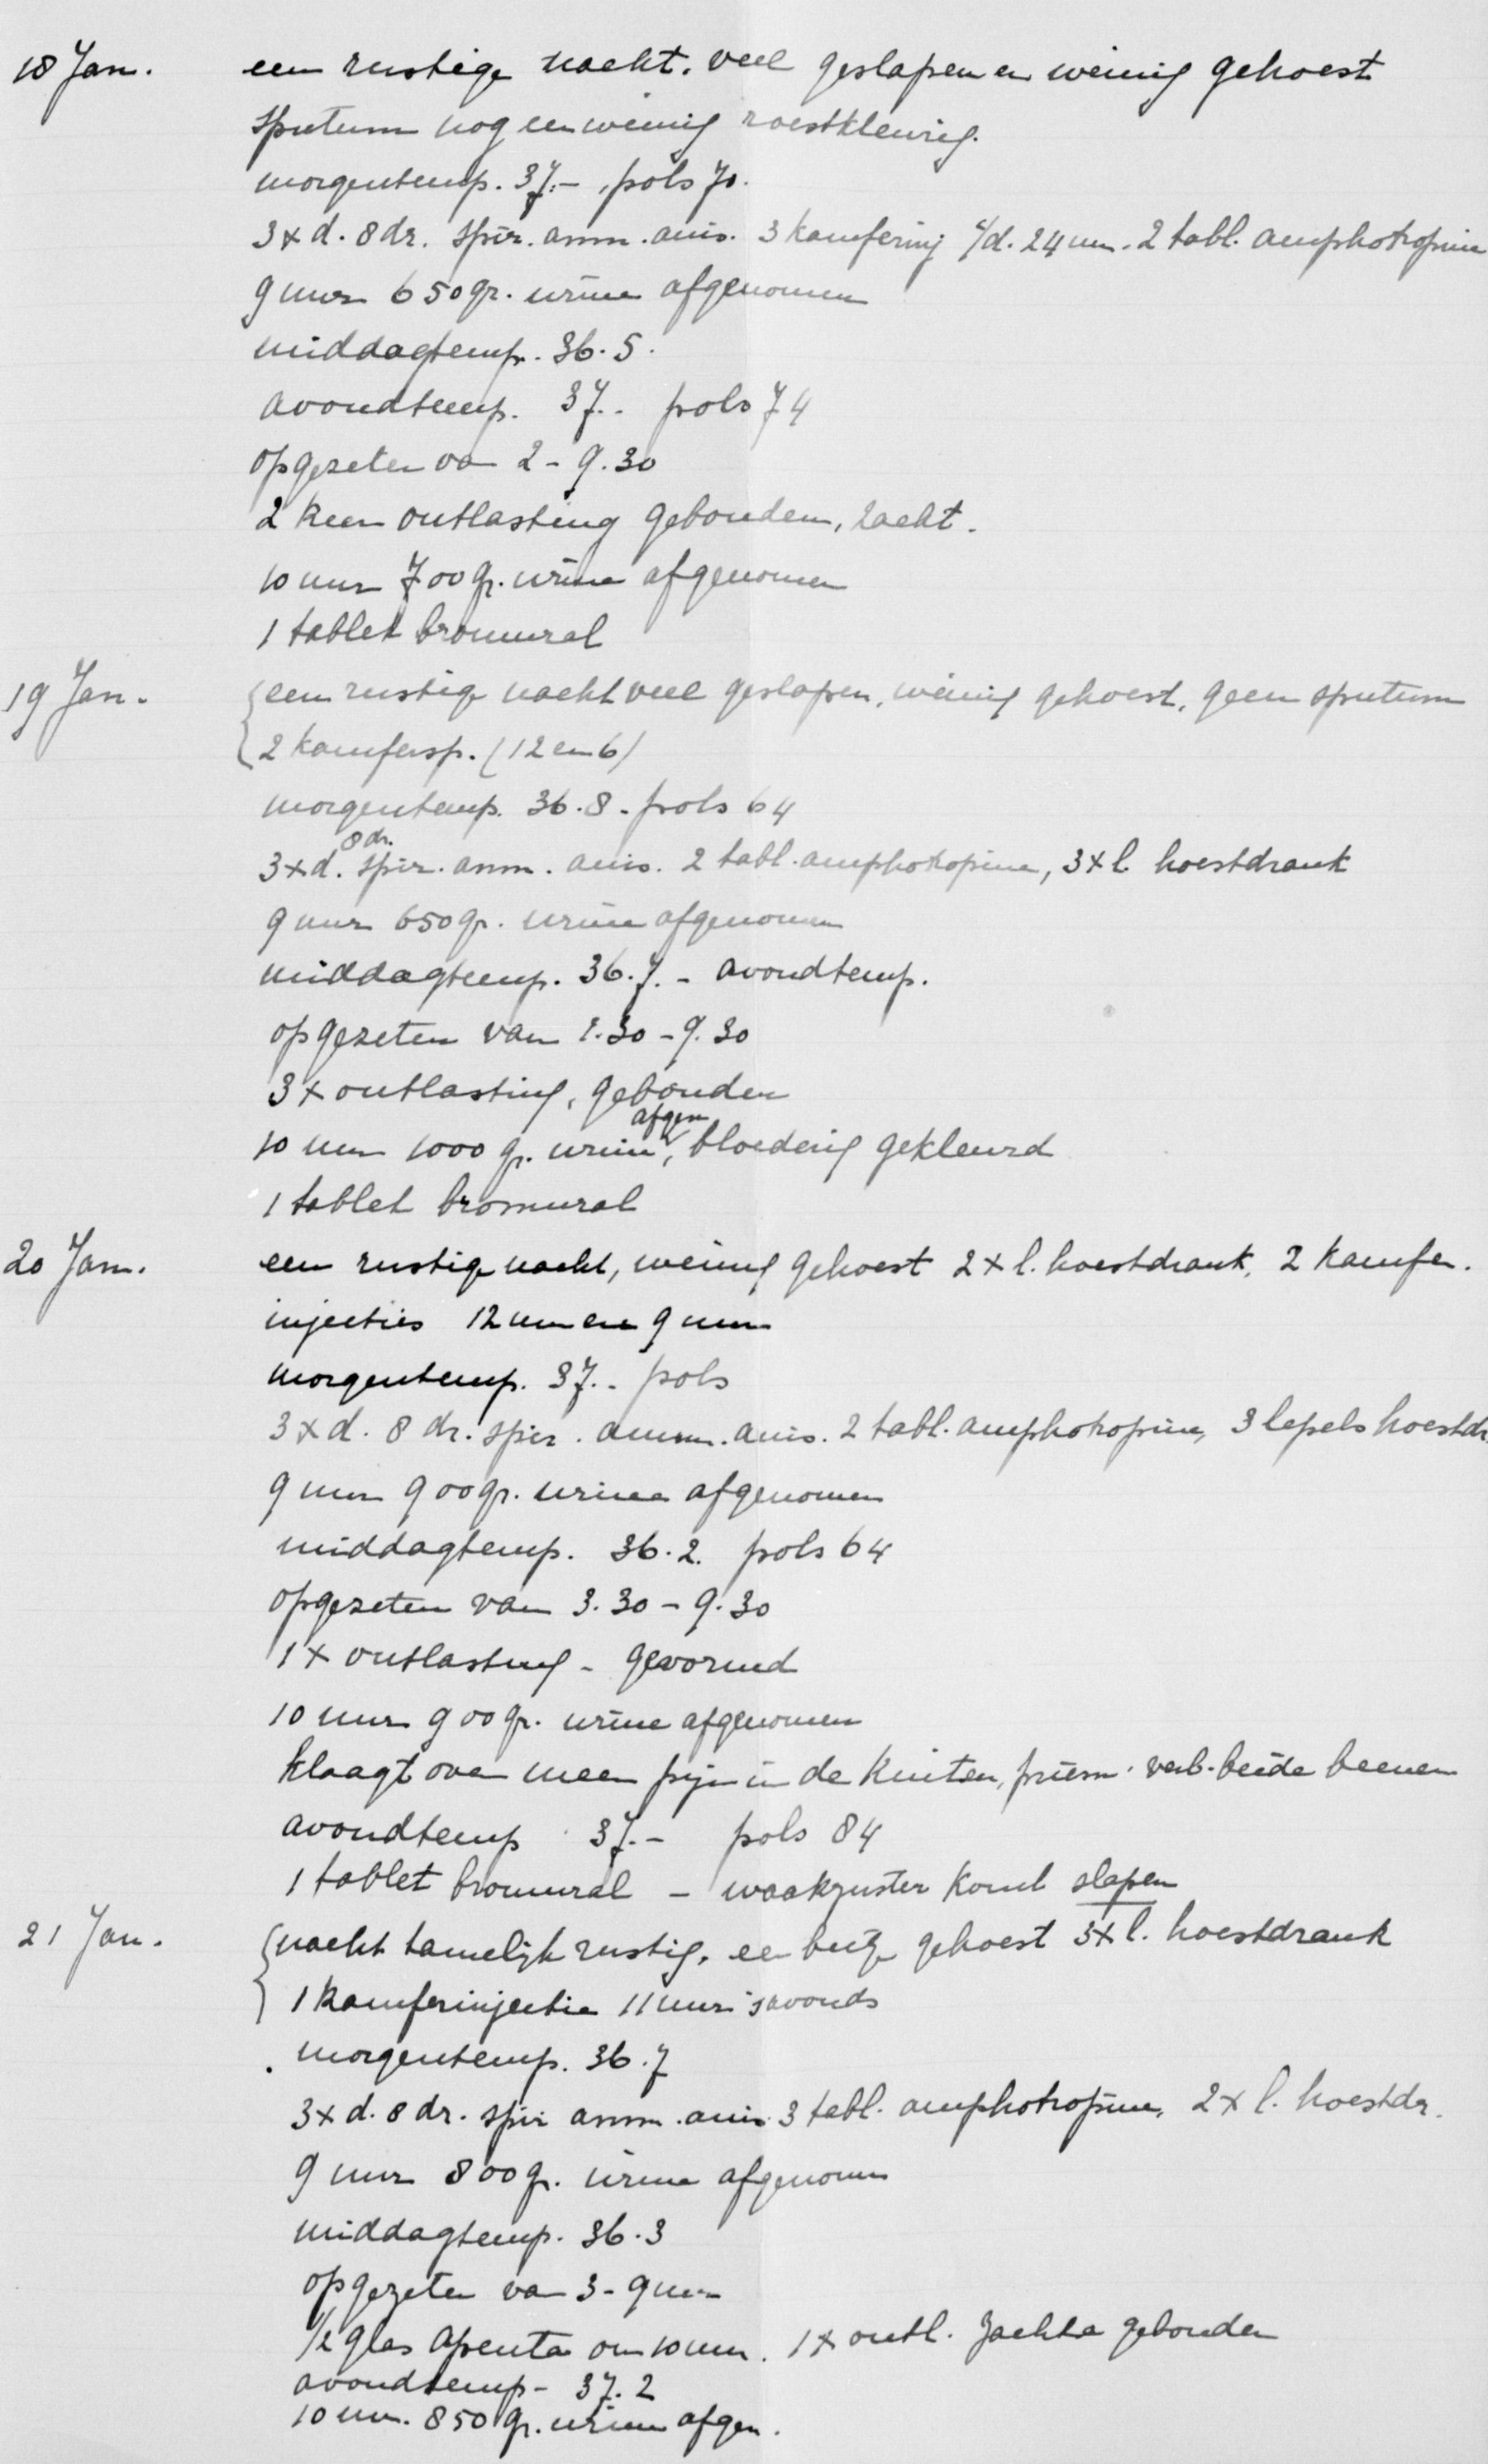 18 Jan. een rustige nacht. veel geslapen en weinig gehoest
sputum nog een weinig roestkleurig.
morgentemp. 37.- , pols 70.
3 x d. 8 dr. spir. amm. anis. 3 kamferinj p/d. 24 uur. 2 tabl. amphotropine
9 uur 650 gr. urine afgenomen
middagtemp. 36.5.
avondtemp. 37.- pols 74
opgezeten van 2 - 9.30
2 keer ontlasting gebonden, zacht.
10 uur 700 gr. urine afgenomen
1 tablet bromural
19 Jan. een rustige nacht veel geslapen, weinig gehoest, geen sputum
2 kamfersp. (12 en 6)
morgentemp. 36.8 - pols 64
3 x d. 8 dr. spir. amm. anis. 2 tabl. amphotropine, 3 x l. hoestdrank
9 uur 650 gr. urine afgenomen
middagtemp. 36.7. - avondtemp.
opgezeten van 1.30 - 9.30
3 x ontlasting, gebonden
10 uur 1000 gr. urine afgen, bloederig gekleurd
1 tablet bromural
20 Jan. een rustige nacht, weinig gehoest 2 x l. hoestdrank, 2 kamfer.
injecties 12 uur en 9 uur
morgentemp. 37.- pols
3 x d. 8 dr. spir. amm. anis. 2 tabl. amphotropine, 3 lepels hoestdr.
9 uur 900 gr. urine afgenomen
middagtemp. 36.2. pols 64
opgezeten van 3.30 - 9.30
1 x ontlasting - gevormd
10 uur 900 gr. urine afgenomen
klaagt over meer pijn in de kuiten, priesn. verb. beide beenen
avondtemp 37.- pols 84
1 tablet bromural - waakzuster komt slapen
21 Jan. nacht tamelijk rustig, een beetje gehoest 3 x l. hoestdrank
1 kamferinjectie 11 uur 's avonds
. morgentemp. 36.7
3 x d. 8 dr. spir amm. anis. 3 tabl. amphotropine, 2 x l. hoestdr.
9 uur 800 gr. urine afgenomen
middagtemp. 36.3
opgezeten van 3 - 9 uur
1/2 glas Apenta om 10 uur. 1 x ontl. zachte gebonden
avondtemp - 37.2
10 uur. 850 gr. urine afgen.